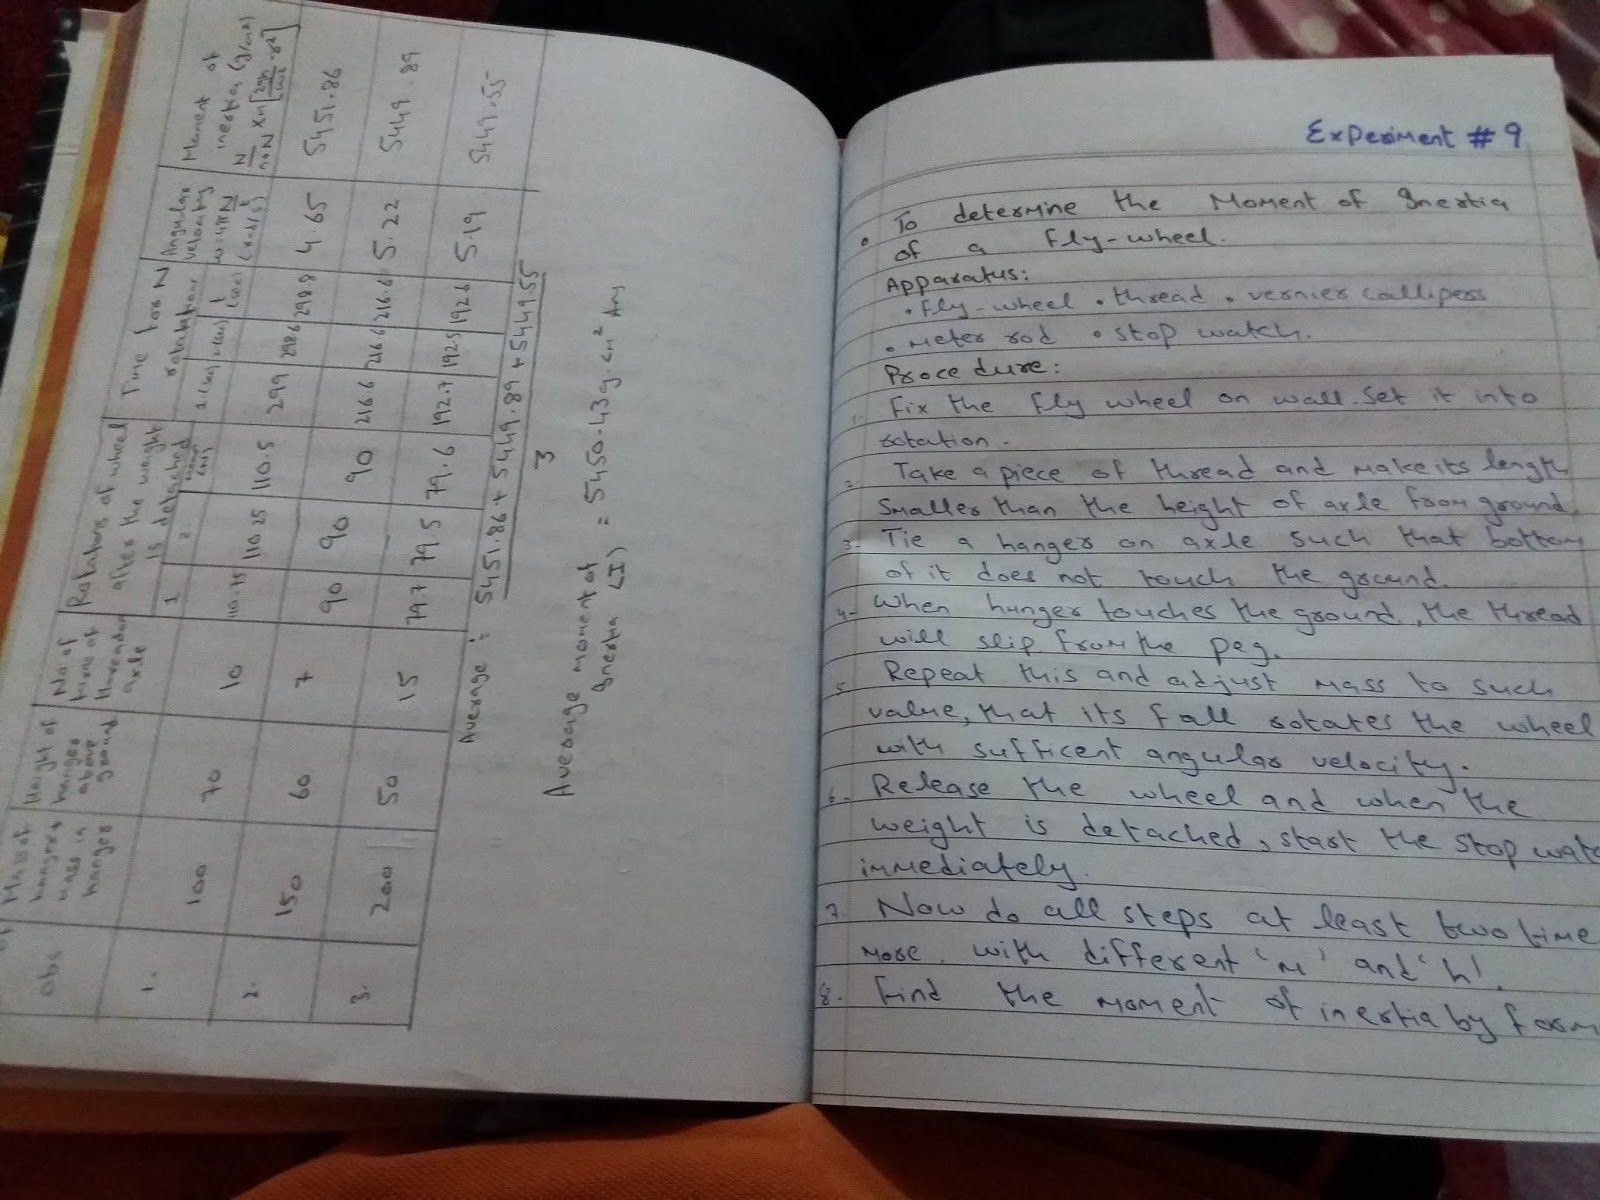 Obs
Mass of
hanger+
mass in
hanger
Height of
hanger
above
ground
No of
turns of
thread on
axle
Rotations of wheel
after the weight
is detached
1
2
mean
Time for N
rotations
1 (sec)
2 (sec)
t
(sec)
Angular
velocity
ω=4πN/t
(rad/s)
Moment of
inertia
N/n+N × m [2gh/ω² - r²]
1. 100 70 10 110.75 110.25 110.5 299 298.6 298.8 4.65 5451.86
2. 150 60 7 90 90 90 216.6 216.6 216.6 5.22 5449.89
3. 200 50 15 79.7 79.5 79.6 192.7 192.5 192.6 5.19 5449.55
Average : 5451.86 + 5449.89 + 5449.55
3
Average moment of
Inertia (I) = 5450.43 g.cm² Ans
Experiment # 9
• To determine the Moment of Inertia
of a Fly-wheel.
Apparatus:
• Fly-wheel • thread • vernier callipers
• Meter rod • stop watch.
Procedure:
1. Fix the Fly wheel on wall. Set it into
rotation.
2. Take a piece of thread and make its length
smaller than the height of axle from ground.
3- Tie a hanger on axle such that bottom
of it does not touch the ground.
4- When hunger touches the ground, the thread
will slip from the peg.
5. Repeat this and adjust mass to such
value, that its fall rotates the wheel
with sufficent angular velocity.
6. Release the wheel and when the
weight is detached, start the stop wat
immediately.
7. Now do all steps at least two time
more. with different 'm' and 'h'.
8. Find the moment of inertia by form